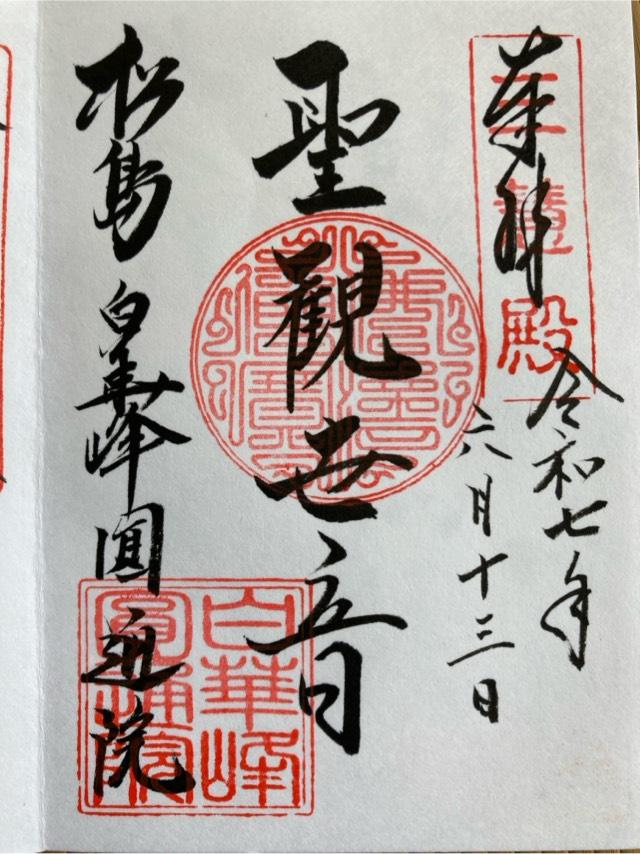 奉拝
三慧殿
令和七年
六月十三日
聖觀世音
松島 白華峰圓通院
白華峰
圓通院